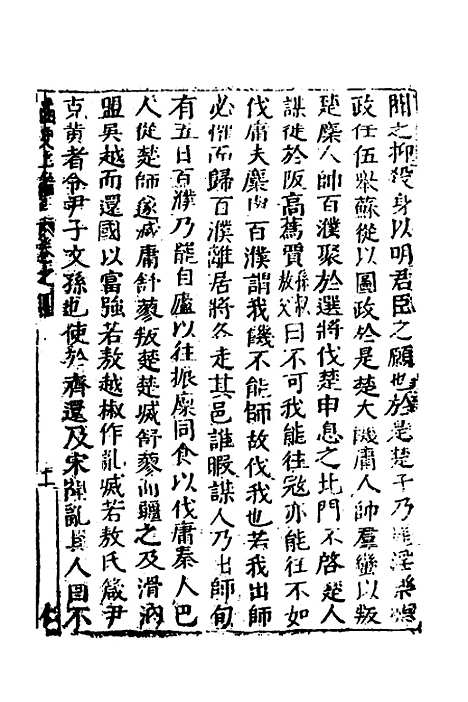 聞之抑殺身以明君臣之願也於是楚子乃罷淫樂聽
政任伍舉蘇從以國政於是楚大饑庸人帥羣蠻以叛
楚麇人帥百濮聚於選將伐楚申息之北門不啓楚人
謀徙於阪高蒍賈孫叔敖父曰不可我能往寇亦能往不如
伐庸夫麇與百濮謂我饑不能師故伐我也若我出師
必懼而歸百濮離居將各走其邑誰暇謀人乃出師旬
有五日百濮乃罷自廬以往振廩同食以伐庸秦人巴
人從楚師遂滅庸舒蓼叛楚楚滅舒蓼而疆之及滑汭
盟吳越而還國以富強若敖越椒作亂滅若敖氏箴尹
克黃者令尹子文孫也使於齊還及宋聞亂其人曰不